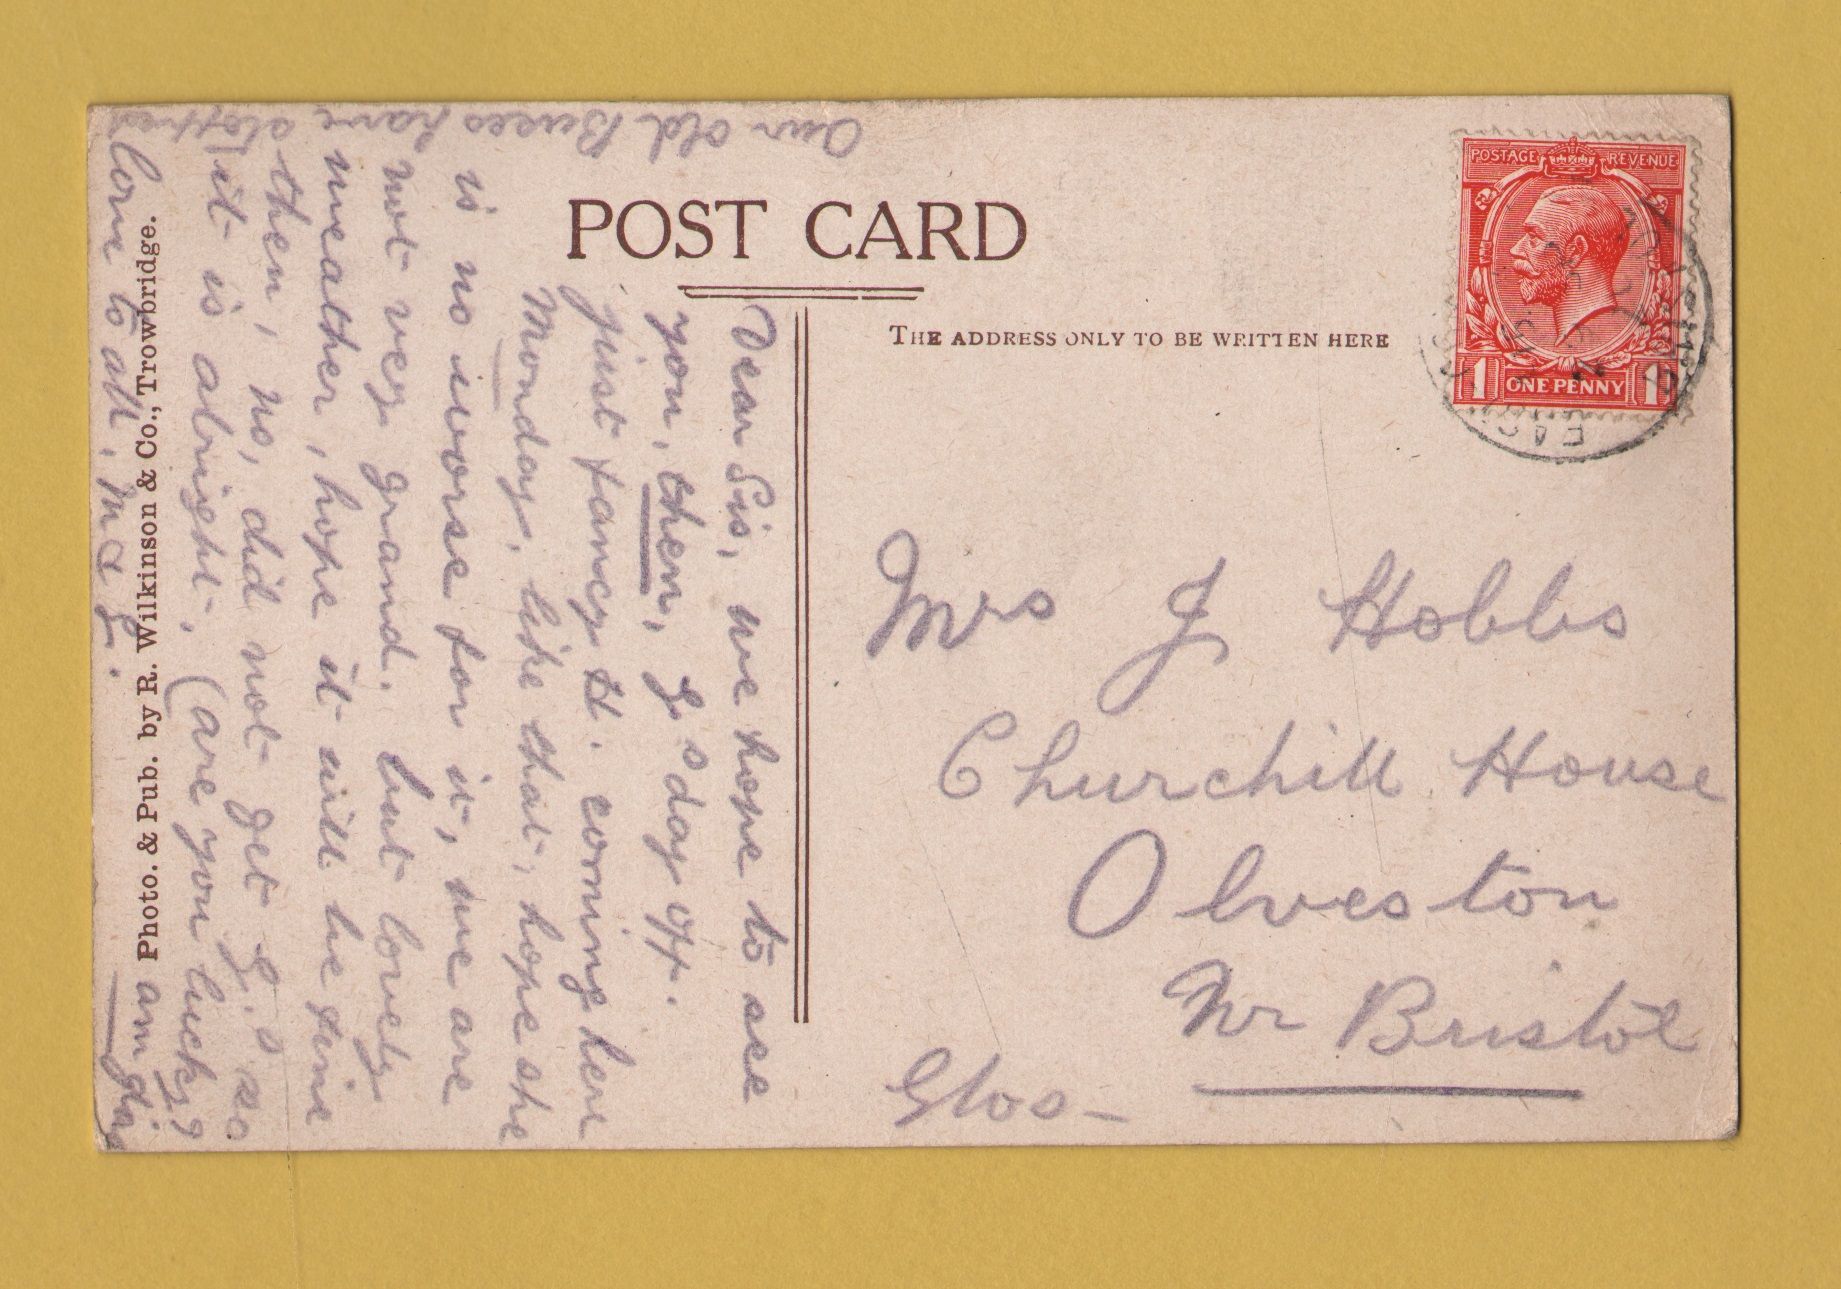 POST CARD
THE ADDRESS ONLY TO BE WRITTEN HERE
POSTAGE REVENUE
1 ONE PENNY 1
Mrs J Hobbs
Churchill House
Olveston
Nr Bristol
Glos-
Dear Sis, we hope to see
you, then, G's day off.
just fancy H. coming here
Monday, like that, hope she
is no worse for it, we are
not very grand, but lovely
weather, hope it will be fine
then, no, did not get G.'s so
it is alright, (are you lucky?
love to all, M & G.
am glad
Our old have stopped
Photo. & Pub. by R. Wilkinson & Co., Trowbridge.